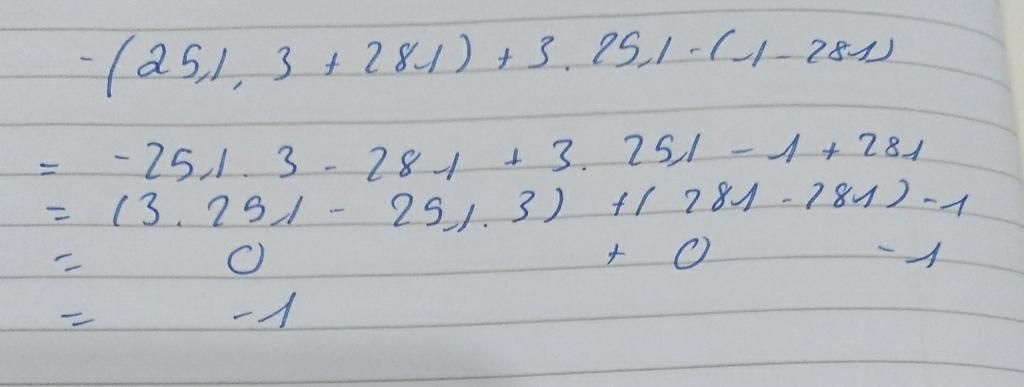 -(25,1 . 3 + 281) + 3. 25,1 - (1 - 281)
= -25,1. 3 - 281 + 3. 25,1 - 1 + 281
= (3. 25,1 - 25,1. 3) + (281 - 281) - 1
= 0 + 0 - 1
= -1